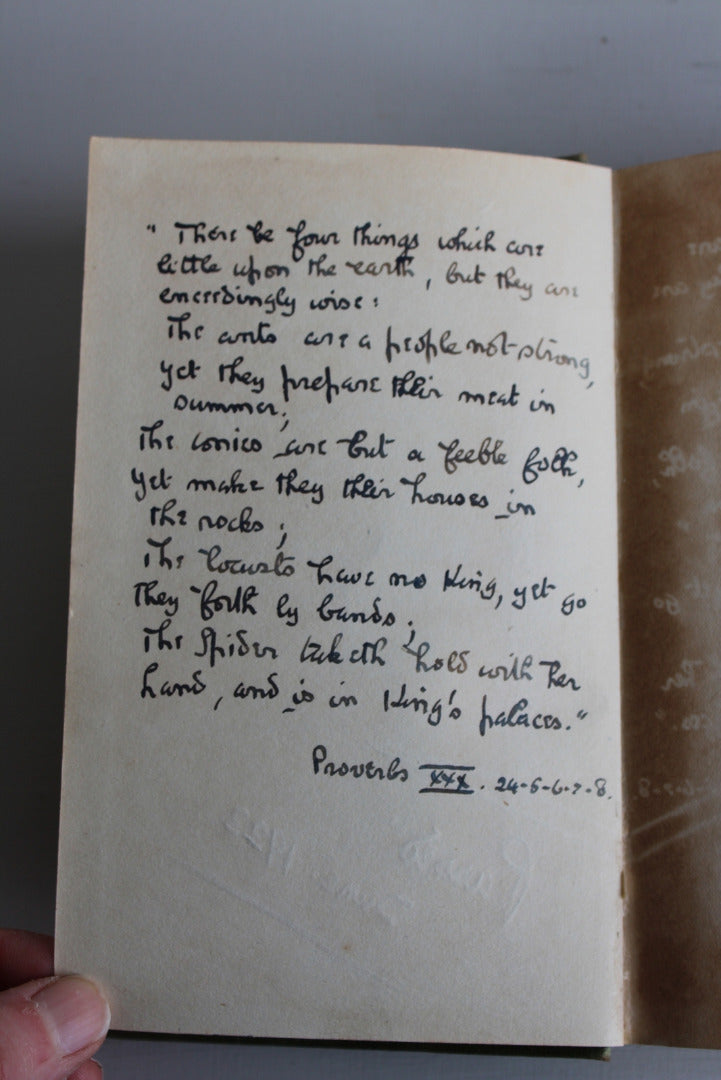 " There be four things which are
little upon the earth, but they are
exceedingly wise:
The ants are a people not strong,
yet they prepare their meat in
summer;
The conies are but a feeble folk,
yet make they their houses in
the rocks;
The locusts have no King, yet go
they forth by bands;
The Spider taketh hold with her
hand, and is in King's palaces."
Proverbs XXX. 24-5-6-7-8.